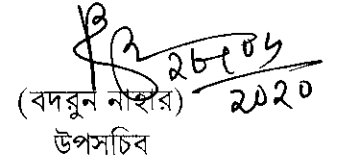 ২৮/০৬
২০২০
(বদরুন নাহার)
উপসচিব